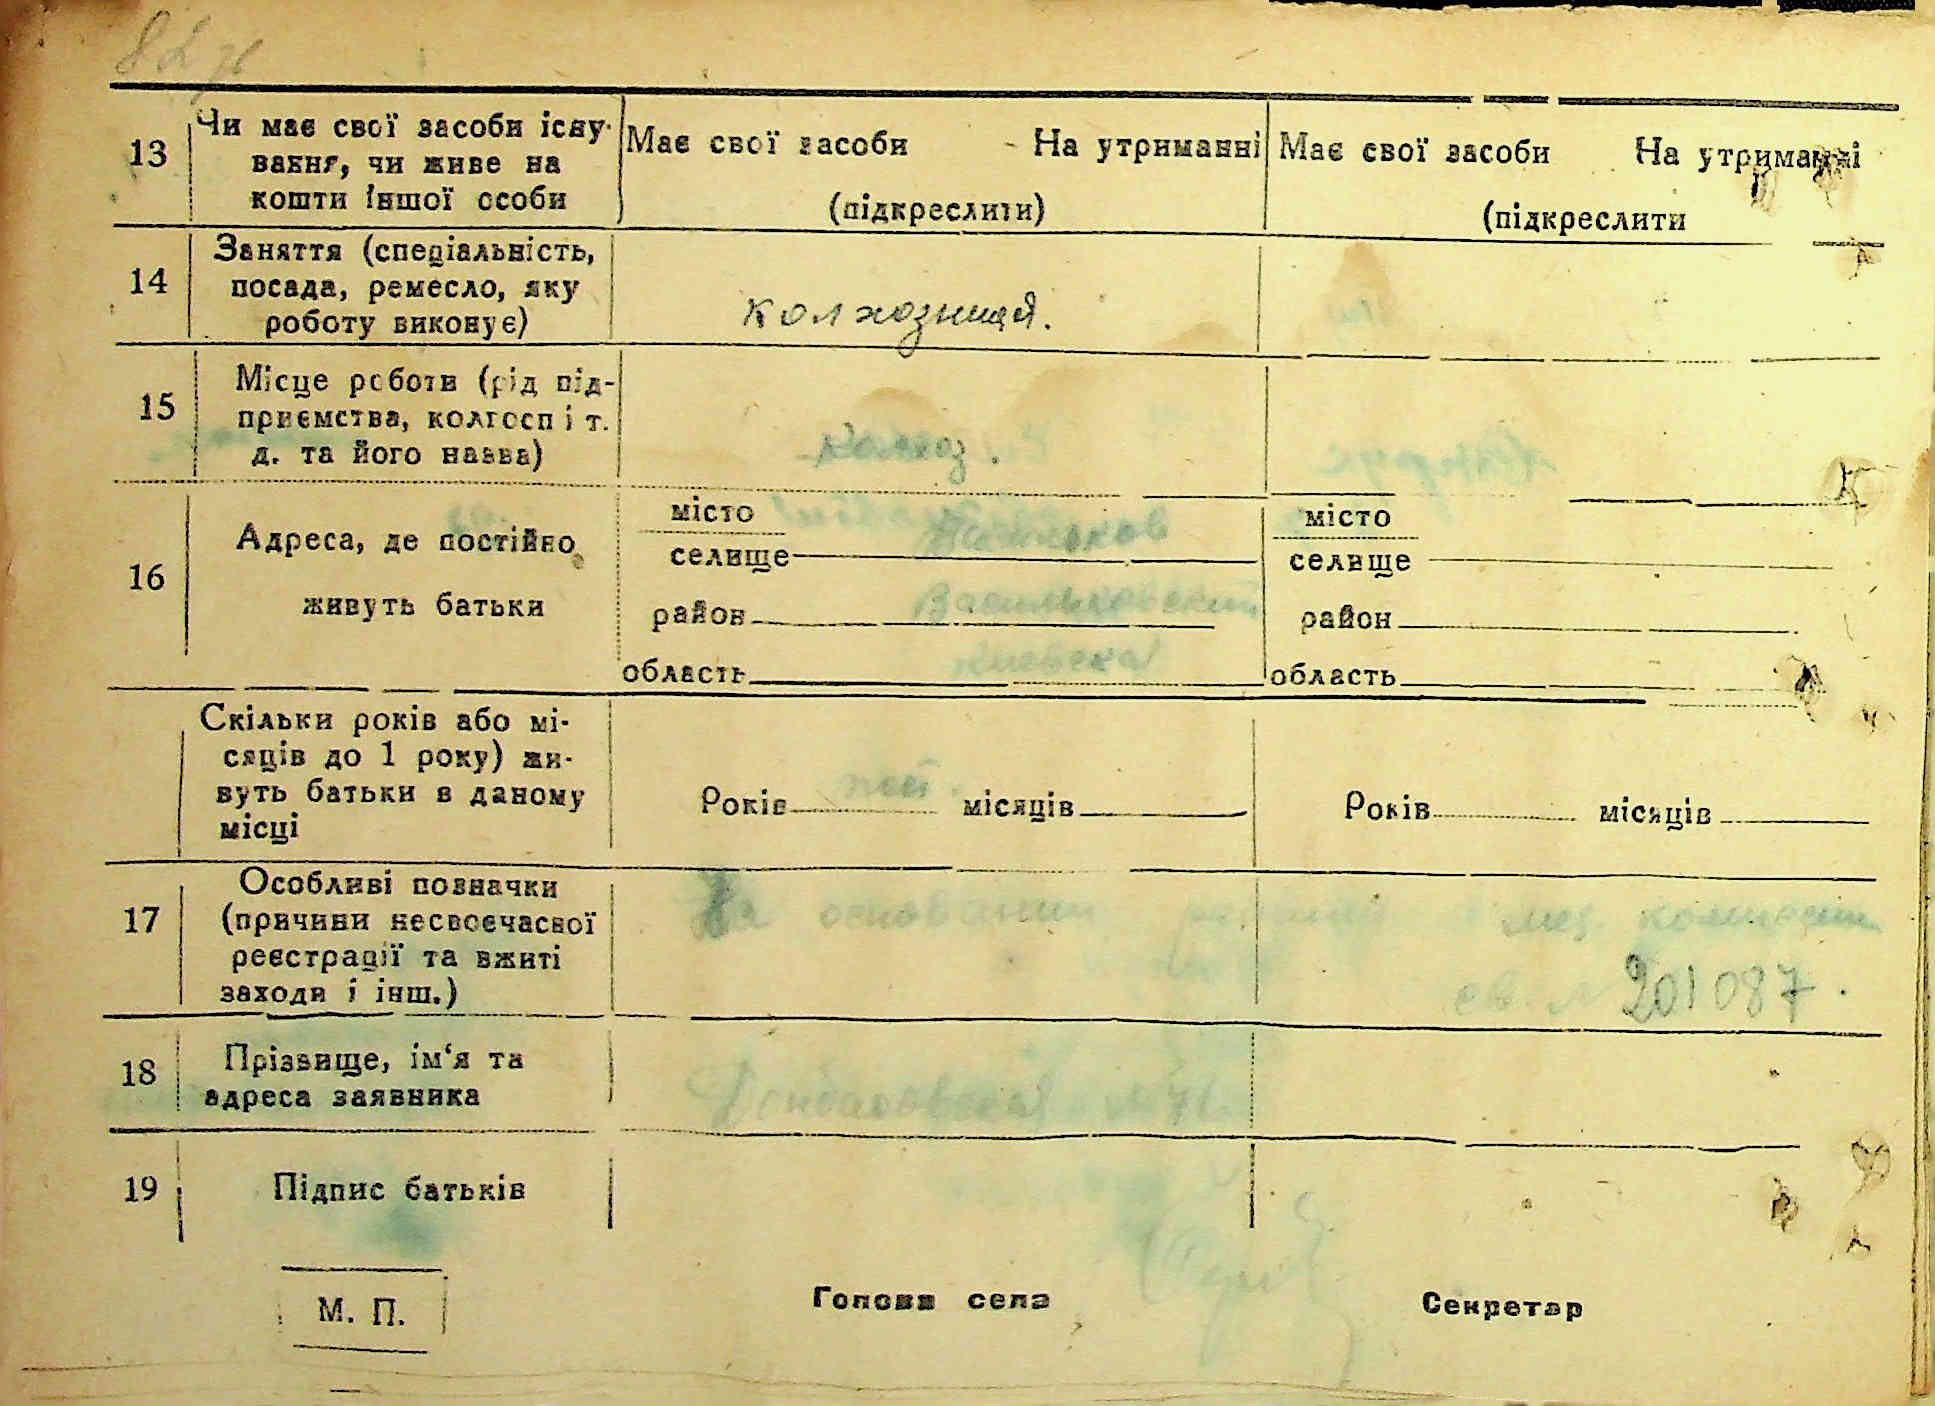 13 Чи має свої засоби існу-
вання, чи живе на
кошти іншої особи
Має свої засоби На утриманні
(підкреслити)
Має свої засоби На утриманні
(підкреслити
14 Заняття (спеціальність,
посада, ремесло, яку
роботу виконує)
колхозница.
15 Місце роботи (рід під-
приємства, колгосп і т.
д. та його назва)
Колхоз.
16 Адреса, де постійно
живуть батьки
місто
селище Васильков
район Васильковский
область Киевская
місто
селище
район
область
Скільки років або мі-
сяців до 1 року) жи-
вуть батьки в даному
місці
Років пост. місяців
Років місяців
17 Особливі позначки
(причини несвоєчасної
реєстрації та вжиті
заходи і інш.)
На основании мед. комиссии
св. № 201087.
18 Прізвище, ім‘я та
адреса заявника
19 Підпис батьків
М. П.
Голова села
Секретар